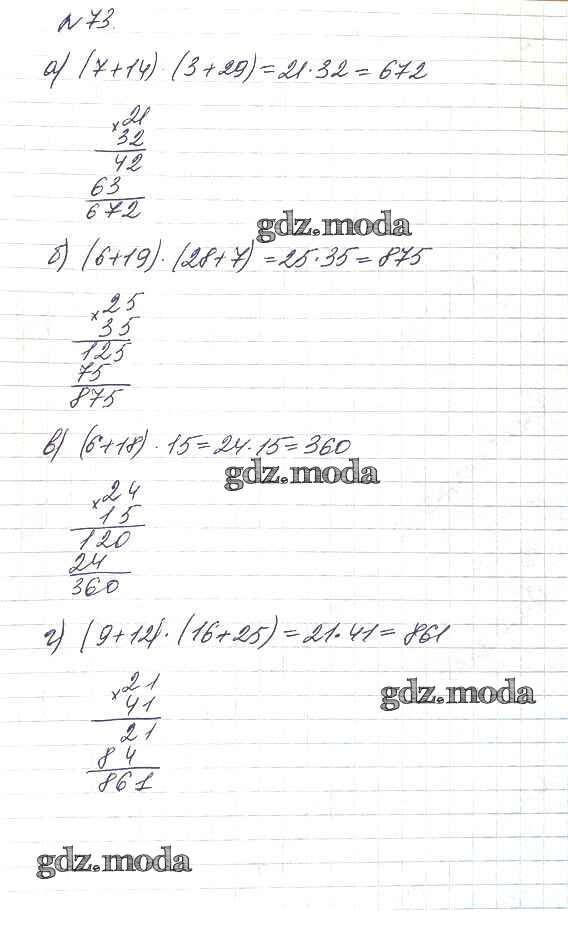 № 73.
а) (7+14)·(3+29)=21·32=672
×21
32
42
63
672
gdz.moda
б) (6+19)·(28+7)=25·35=875
×25
35
125
75
875
в) (6+18)·15=24·15=360
gdz.moda
×24
15
120
24
360
г) (9+12)·(16+25)=21·41=861
×21
41
21
84
861
gdz.moda
gdz.moda